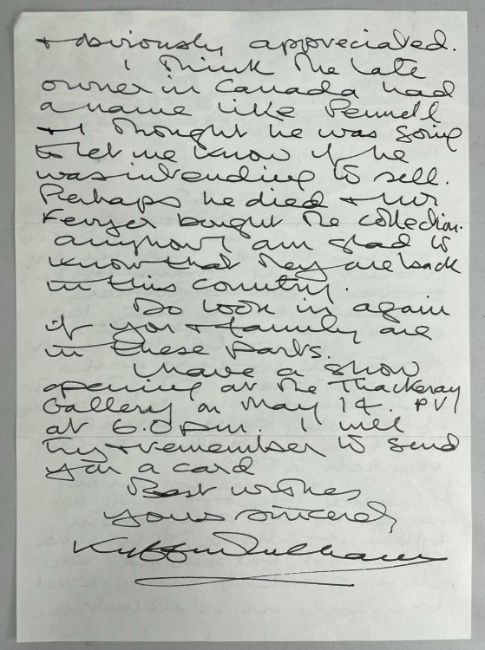 + obviously appreciated.
I think the late
owner in Canada had
a name like Pennell
+ I thought he was going
to let me know if he
was intending to sell.
Perhaps he died + Mr
bought the collection.
anyhow I am glad to
know that they are back
in this country.
Do look in again
if you + family are
in these parts.
I have a show
opening at the Thackeray
Gallery on May 14. PV
at 6.0 pm. I will
try + remember to send
you a card
Best wishes
yours sincerely,
Kyffin Williams